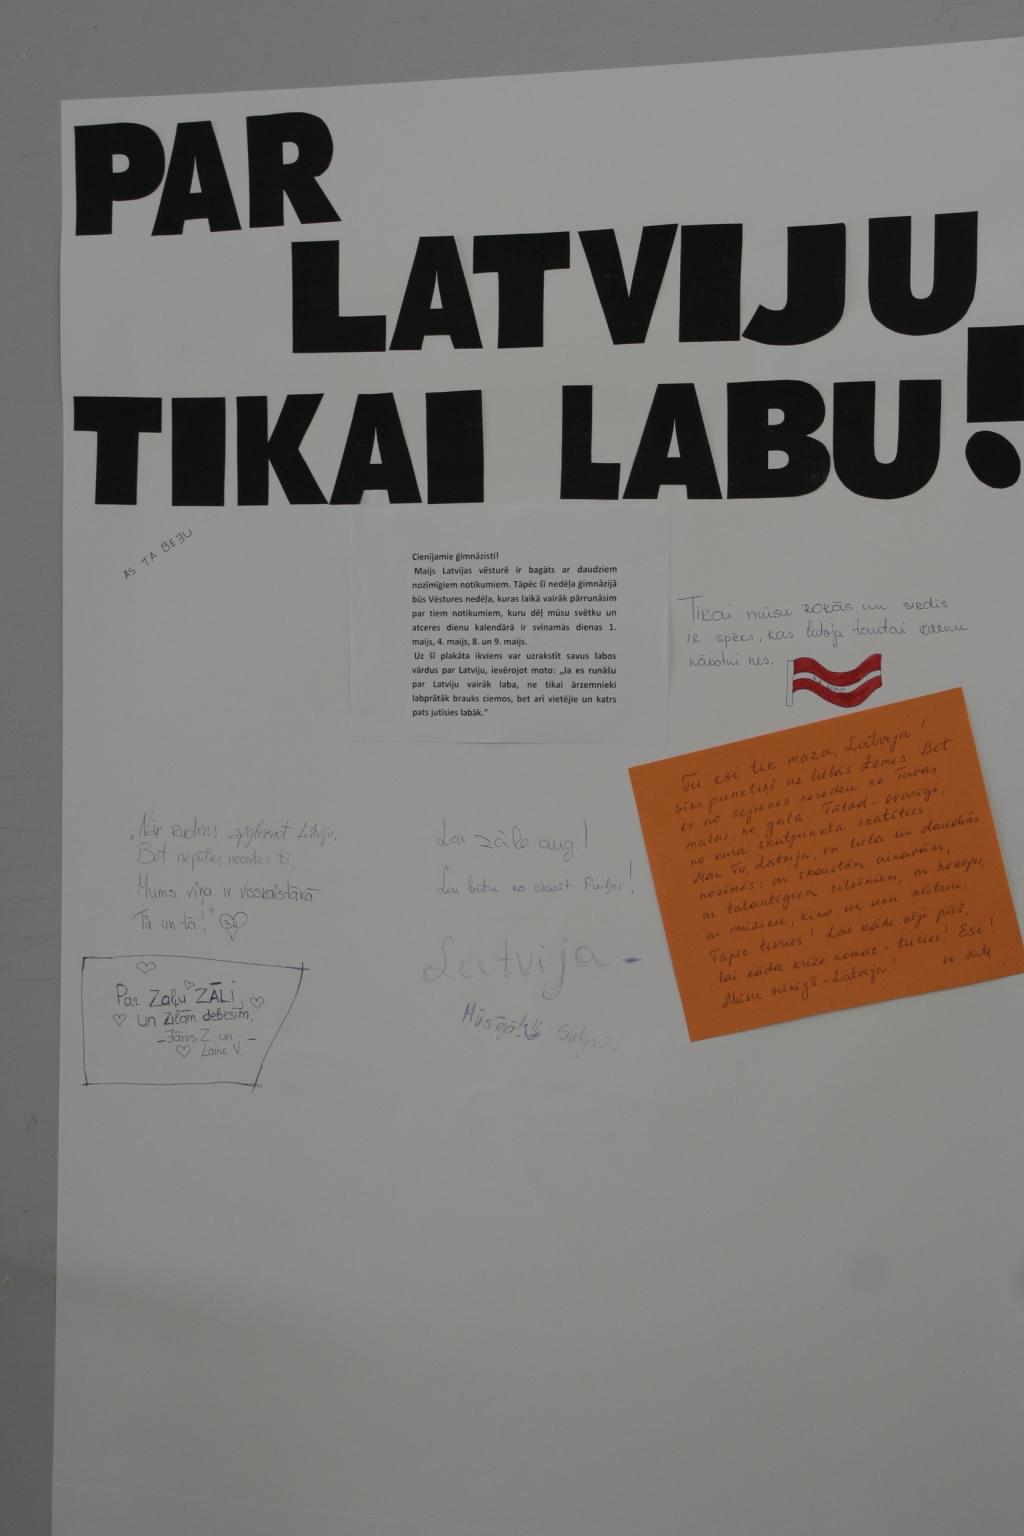 PAR
LATVIJU
TIKAI LABU!
AS TA BEJU
Cienījamie ģimnāzisti!
Maijs Latvijas vēsturē ir bagāts ar daudziem
nozīmīgiem notikumiem. Tāpēc šī nedēļa ģimnāzijā
būs Vēstures nedēļa, kuras laikā vairāk pārrunāsim
par tiem notikumiem, kuru dēļ mūsu svētku un
atceres dienu kalendārā ir svinamās dienas 1.
maijs, 4. maijs, 8. un 9. maijs.
Uz šī plakāta ikviens var uzrakstīt savus labos
vārdus par Latviju, ievērojot moto: „Ja es runāšu
par Latviju vairāk laba, ne tikai ārzemnieki
labprātāk brauks ciemos, bet arī vietējie un katrs
pats jutīsies labāk."
Tikai mūsu rokās un sirdīs
ir spēks, kas latvju tautai varenu
nākotni nes.
Tu esi tik maza, Latvija!
Sīks punktiņš uz lielās Zemes. Bet
es no šejienes neredzu ne Tavas
malas, ne gala. Tātad - svarīgi,
no kura skatpunkta skatīties.
Man Tu, Latvija, esi liela un daudz
nozīmēs: ar skaistām ainavām,
ar talantīgiem cilvēkiem, ar hokeju,
ar mūziku, kino un senu vēsturi.
Tāpēc turies! Lai kādi vēji pūš,
lai kāda krīze nomāc - turies! Esi!
Mūsu vienīgā - Latvija!
„Nāk rudens apgleznot Latviju,
Bet nepūlies, necenties tā,
Mums viņa ir visskaistākā
Tik un tā!"
Lai zāle aug!
Lai būtu ko
Latvija -
Mūsējā!
Par Zaļu ZĀLI,
un zilām debesīm.
- Jānis Z. un -
Laine V